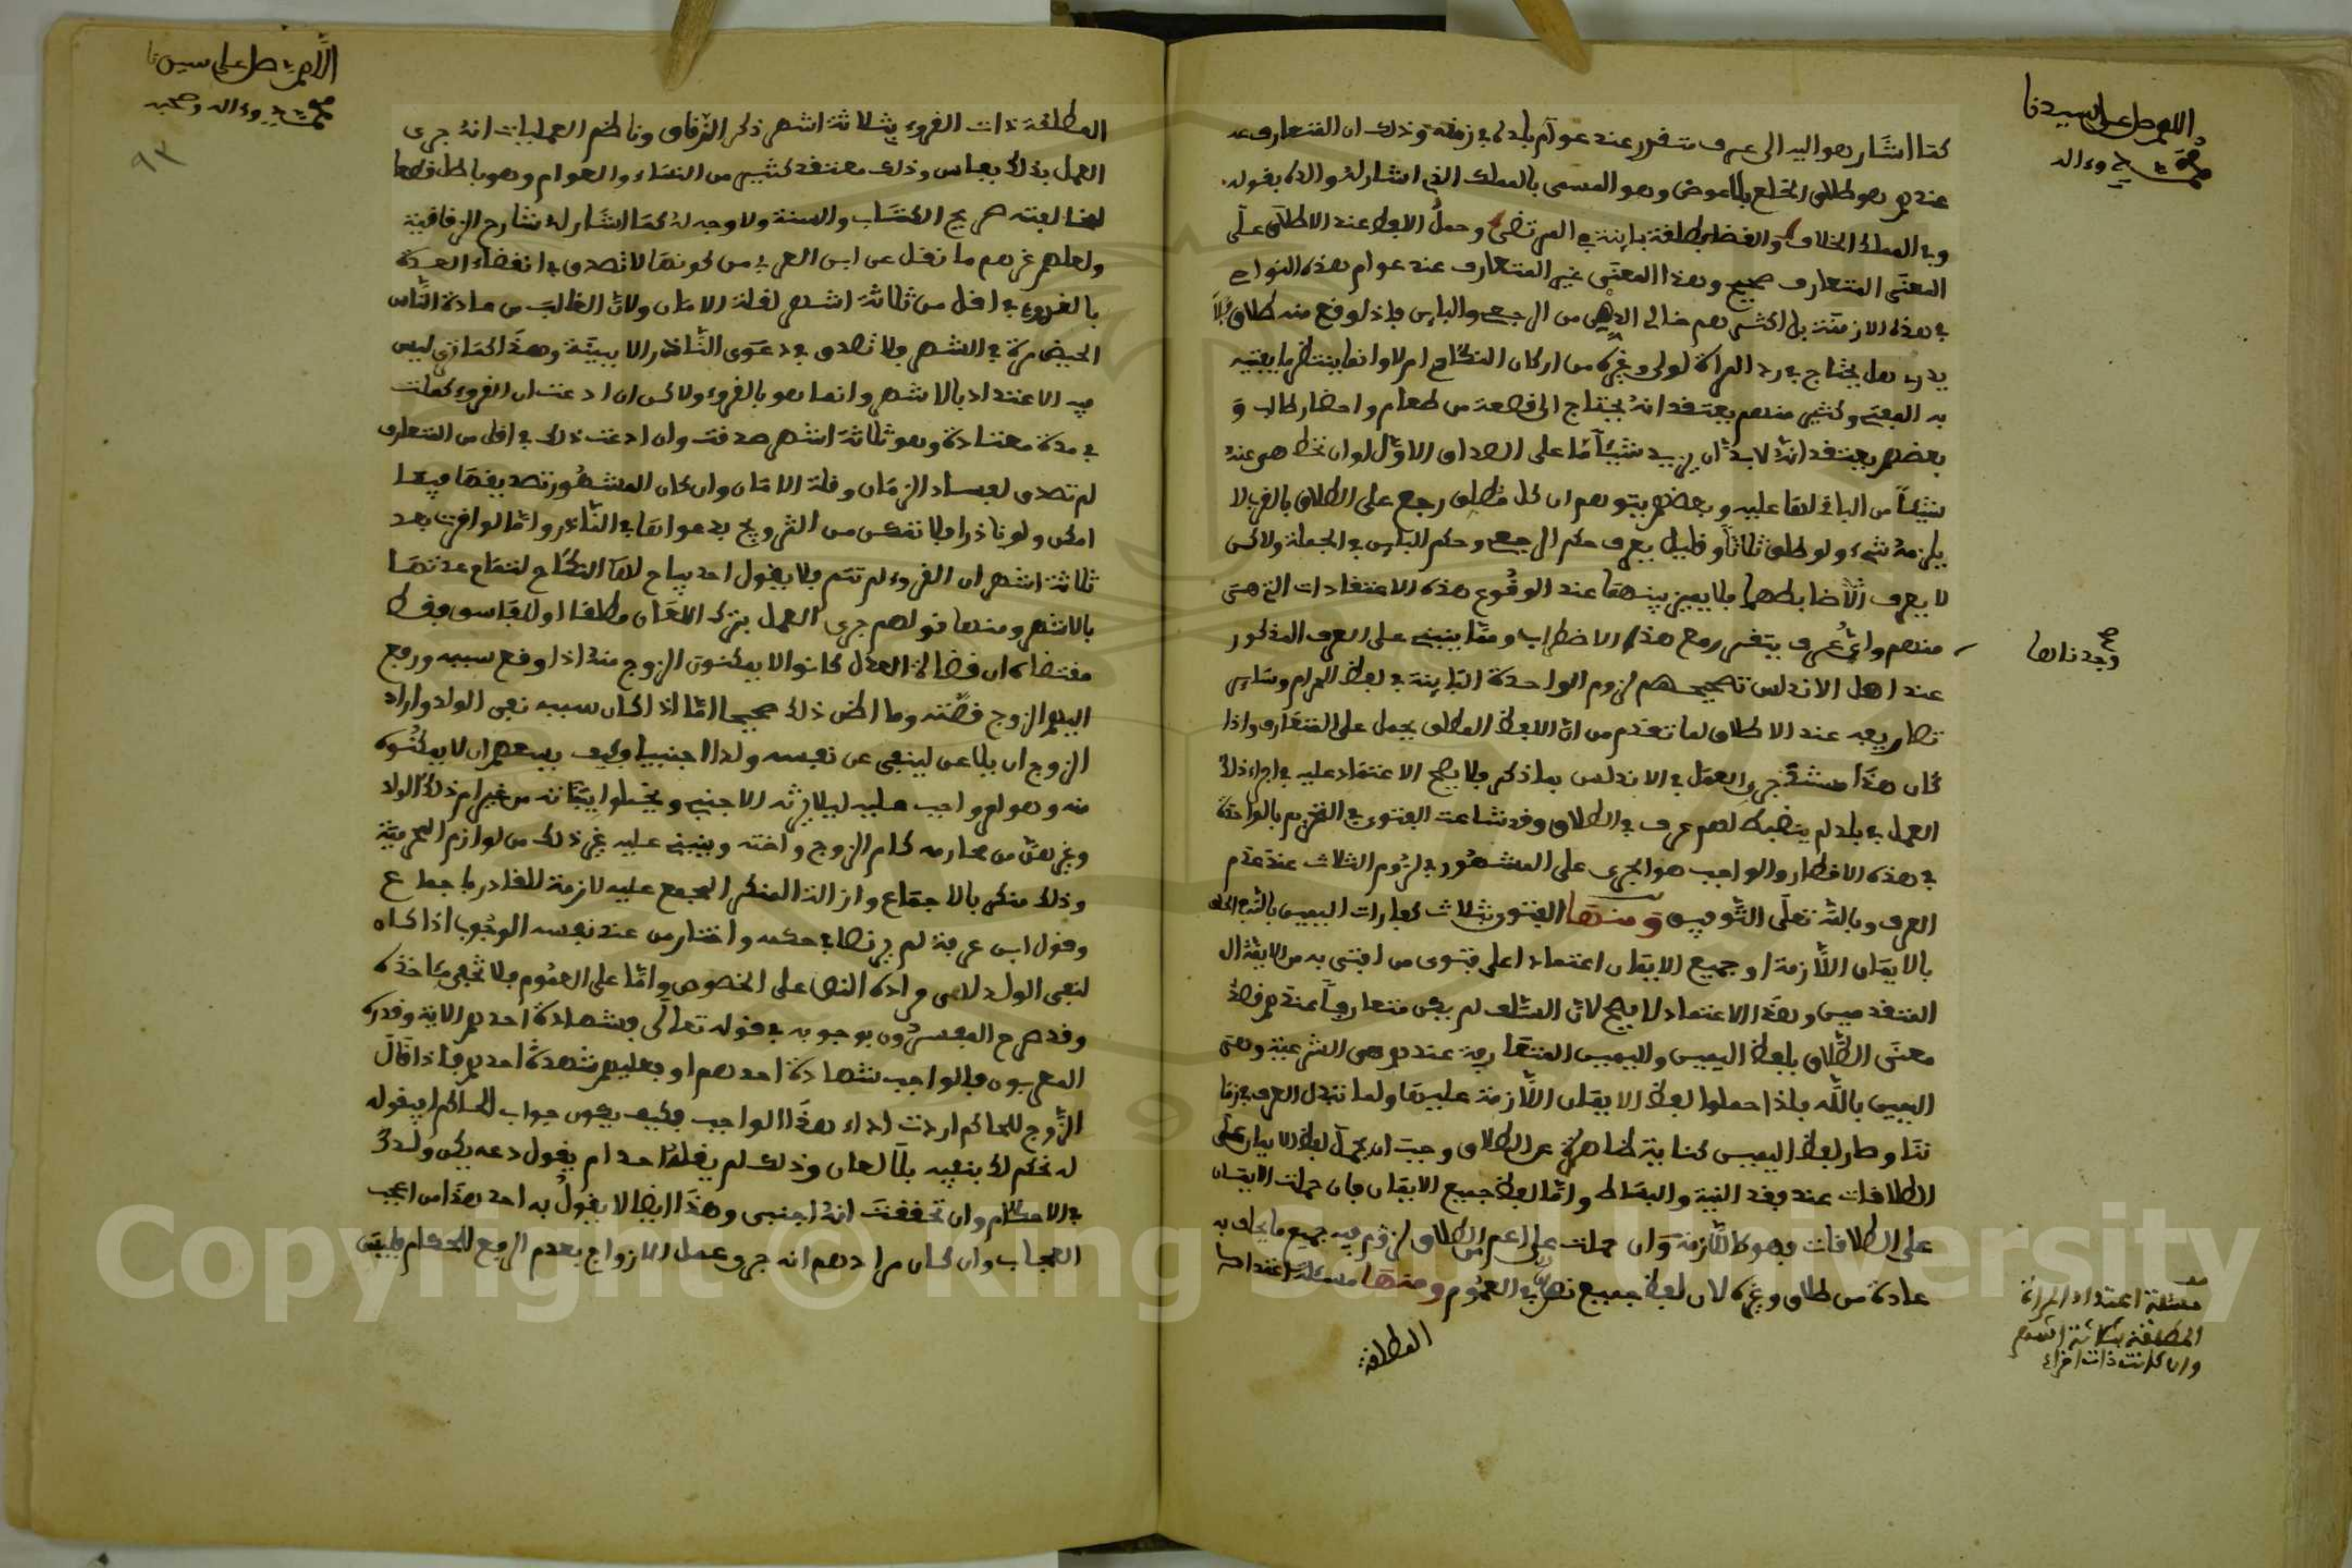 اللهم صل على سيدنا
محمد وءاله
كما اشار هو اليه الى عرف تقرر عند عوام بلده في زمنه وذلك ان المتعارف عند
عندهم هو طلاق الخلع بلا عوض وهو المسمى بالمملك الذي اشار له والده بقوله
وفي المملك الخلاف والقضا بطلقة باينة في المرتضى وحمل اللفظ عند الاطلاق على
المعنى المتعارف صحيح وهذا المعنى غير المتعارف عند عوام هذه النواحي
في هذه الازمنة بل اكثرهم خالي الذهن من الرجعي والباين فاذا وقع منه طلاق فلا
يدري هل يحتاج في رد المراة لولي وغيره من اركان النكاح ام لا وانما ينتظر ما يفتيه
به المفتي وكثير منهم يعتقد انه يحتاج الى قصعة من طعام واحضار طالب و
بعضهم يعتقد انه لا بد ان يزيد شيئا ما على الصداق الاول او ان تحط هي عنه
شيئا من الباقي لها عليه وبعضهم يتوهم ان كل مطلق رجع على الطلاق بالقرب لا
يلزمه شيء ولو طلق ثلاثا وقليل يعرف حكم الرجعي وحكم الباين في الجملة ولاكن
لا يعرف ضابطهما فلا يميز بينهما عند الوقوع هذه الاعتقادات التي هي
منهم واي عرف يتقرر مع هذا الاضطراب ومما ينبني على العرف المذكور
وجدناها صح
عند اهل الاندلس تصحيحهم لزوم الواحدة الباينة في لفظ الحرام وساير
نظايره عند الاطلاق لما تقدم من ان اللفظ المطلق يحمل على المتعارف واذا
كان هذا مستند جري العمل في الاندلس بما ذكر فلا يصح الاعتماد عليه في اجراء ذلك
العمل في بلد لم ينضبط لهم عرف في الطلاق وقد شاعت الفتوى في التحريم بالواحدة
في هذه الاقطار والواجب هو الجري على المشهور في لزوم الثلاث عند عدم
العرف وبالله تعلى التوفيق ومنها الفتوى بثلاث كفارات اليمين بالله في الحلف
بالايمان اللازمة او جميع الايمان اعتمادا على فتوى من افتى به من الايمة ال
المتقدمين وهذا الاعتماد لا يصح لان السلف لم يكن متعارفا عندهم قصد
معنى الطلاق بلفظ اليمين واليمين المتعارفة عندهم هي الشرعية وهي
اليمين بالله فلذا حملوا لفظ الايمان اللازمة عليها ولما تبدل العرف في زما
ننا وصار لفظ اليمين كناية ظاهرة عن الطلاق وجب ان يحمل لفظ الايمان على
الطلاقات عند فقد النية والبساط واما لفظ جميع الايمان فان حملت الايمان
على الطلاقات فهو كاللازمة وان حملت على اعم من الطلاق لزم فيه جميع ما يحلف به
عادة من طلاق وغيره لان لفظ جميع نص في العموم ومنها مسئلة اعتداد
المطلقة
مسئلة اعتداد المراة
المطلقة بثلاثة اشهر
وان كانت ذات اقراء
اللهم صل على سيدنا
محمد وءاله وصحبه
٩٣
المطلقة ذات القروء بثلاثة اشهر ذكر الزقاق وناظم العمليات انه جرى
العمل بذلك بفاس وذلك معتقد كثير من النساء والعوام وهو باطل قطعا
لمخالفته صريح الكتاب والسنة ولا وجه له كما اشار له شارح الزقاقية
ولعلهم غرهم ما نقل عن ابن العربي من كونها لا تصدق في انقضاء العدة
بالقروء في اقل من ثلاثة اشهر لقلة الامان ولان الغالب من عادة الناس
الحيض مرة في الشهر فلا تصدق في دعوى النادر الا ببينة وهذا كما ترى ليس
فيه الاعتداد بالاشهر وانما هو بالقروء ولاكن ان ادعت ان القروء كملت
في مدة معتادة وهو ثلاثة اشهر صدقت وان ادعت ذلك في اقل من المتعارف
لم تصدق لفساد الزمان وقلة الامان وان كان المشهور تصديقها فيما
امكن ولو نادرا فلا تمكن من التزويج بدعواها في النادر واما لو اقرت بعد
ثلاثة اشهر ان القروء لم تتم فلا يقول احد يباح لها النكاح لتمام عدتها
بالاشهر ومنها قولهم جرى العمل بترك اللعان مطلقا او للفاسق فقط
مقتضاه ان قضاة العدل كانوا لا يمكنون الزوج منه اذا وقع سببه ورفع
اليهم الزوج قضيته وما اظن ذلك صحيحا اما اذا كان سببه نفي الولد واراد
الزوج ان يلاعن لينفي عن نفسه ولدا اجنبيا فكيف يسعهم ان لا يمكنوه
منه وهو امر واجب عليه ليلا يرثه الاجنبي ويختلوا ببناته من غير ام ذلك الولد
وغيرهن من محارمه كام الزوج واخته وينبني عليه غير ذلك من لوازم المحرمية
وذلك منكر بالاجماع وازالة المنكر المجمع عليه لازمة للقادر باجماع
وقول ابن عرفة لم ير نصا في حكمه واختار من عند نفسه الوجوب اذا كان
لنفي الولد لاكن مراده النص على الخصوص واما على العموم فلا تخفى مئاخذه
وقد صرح المفسرون بوجوبه في قوله تعالى فشهادة احدهم الاية وقدره
المعربون فالواجب شهادة احدهم او فعليهم شهادة احدهم فاذا قال
الزوج للحاكم اردت اداء هذا الواجب فكيف يكون جواب الحاكم ايقول
له نحكم لك بنفيه بلا لعان وذلك لم يقله احد ام يقول دعه يكن ولدك
في الاحكام وان تحققت انه اجنبي وهذا ايضا لا يقول به احد هذا من اعجب
العجاب وان كان مرادهم انه جرى عمل الازواج بعدم الرفع للحكام فليس